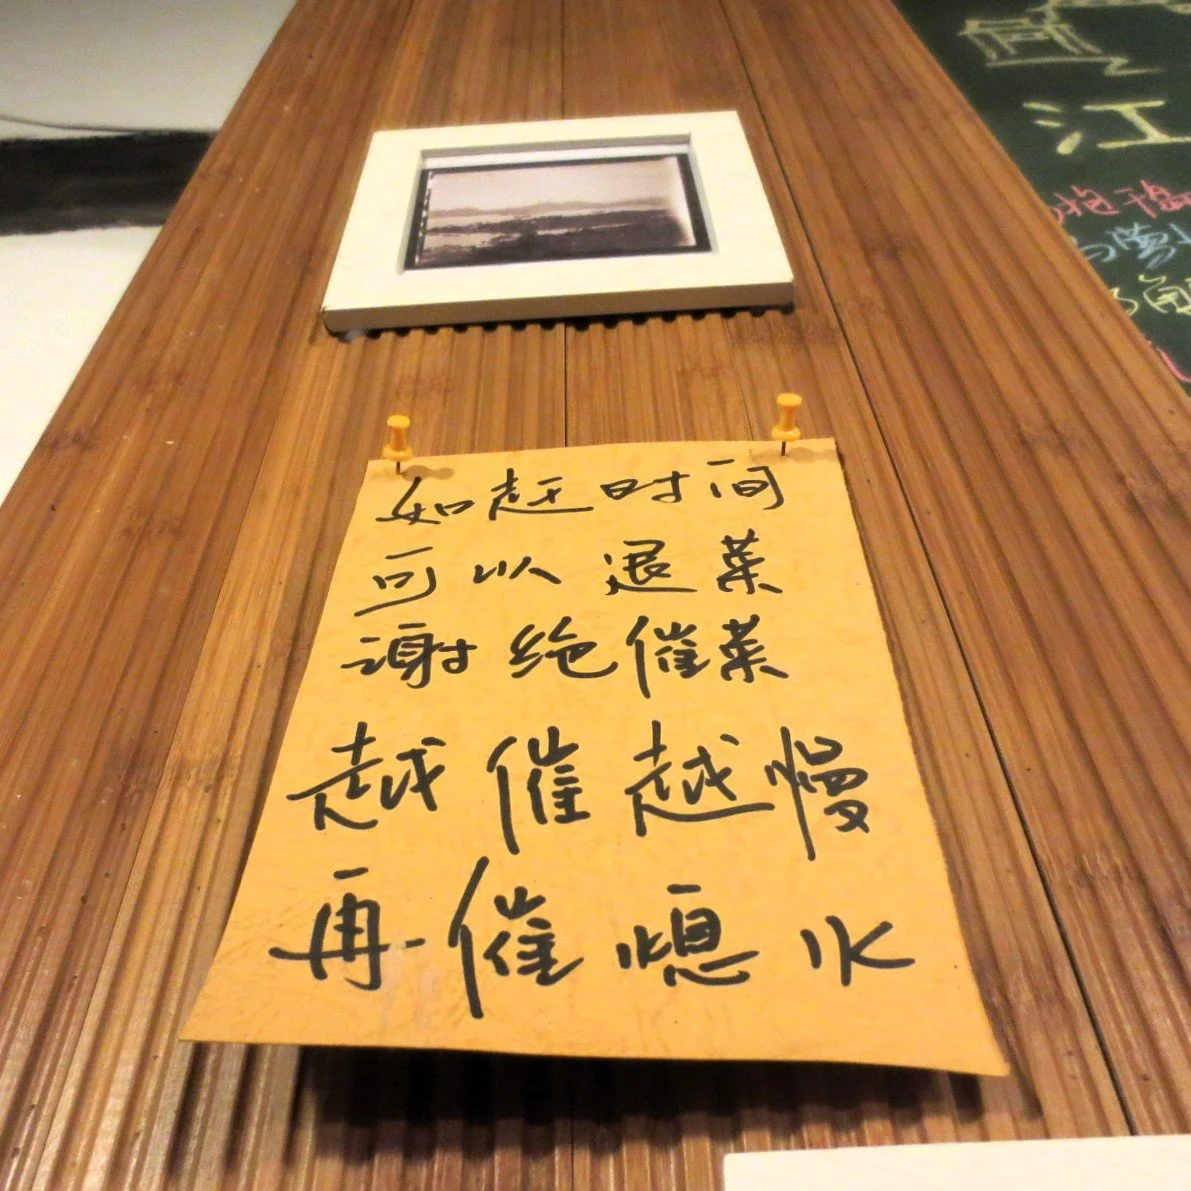 如赶时间
可以退菜
谢绝催菜
越催越慢
再催熄火
江